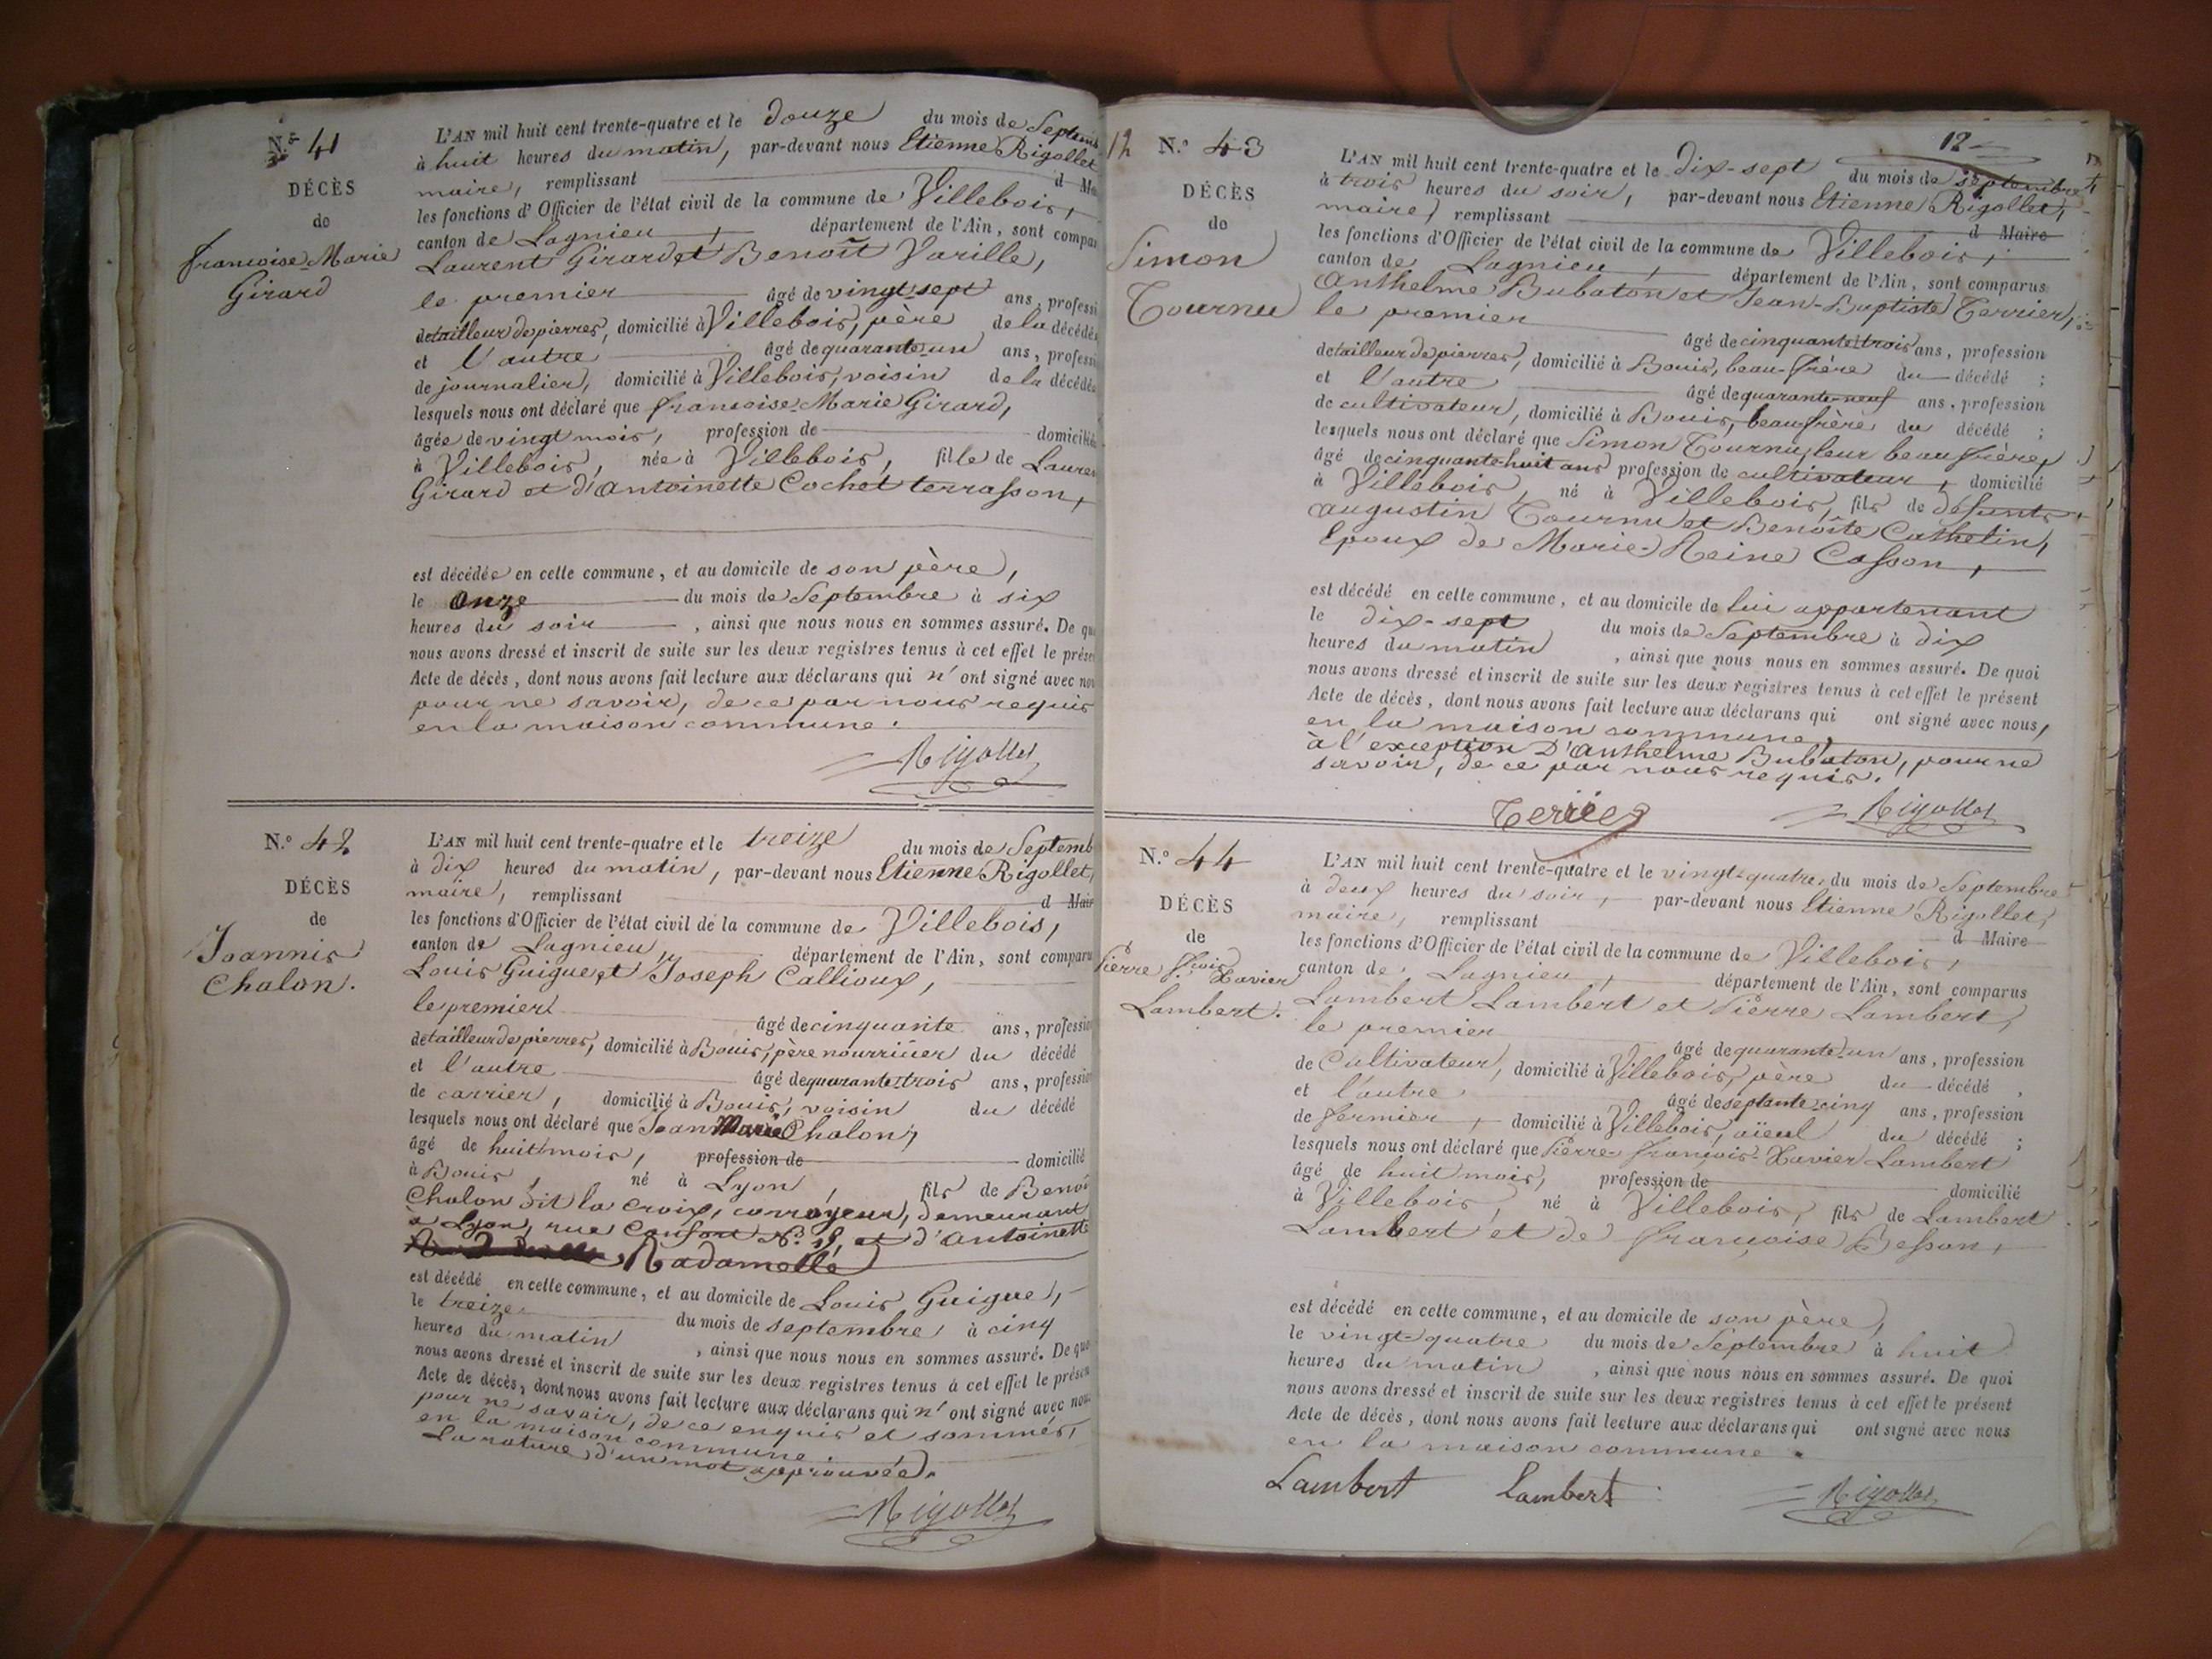 N.º 41
DÉCÈS
de
françoise-Marie
Girard
L'AN mil huit cent trente-quatre et le douze du mois de Septemb
à huit heures du matin, par-devant nous Etienne Rigollet
maire, remplissant d Ma
les fonctions d'Officier de l'état civil de la commune de Villebois,
canton de Lagnieu, département de l'Ain, sont compar
Laurent Girard et Benoît Varille,
le premier âgé de vingt-sept ans, professi
de tailleur de pierres, domicilié à Villebois, père de la décédée
et l'autre âgé de quarante-un ans, professi
de journalier, domicilié à Villebois, voisin de la décédée
lesquels nous ont déclaré que françoise-Marie Girard,
âgée de vingt mois, profession de domiciliée
à Villebois, née à Villebois, fille de Lauren
Girard et d'Antoinette Cochet terrasson,
est décédée en cette commune, et au domicile de son père,
le onze du mois de Septembre à six
heures du soir, ainsi que nous nous en sommes assuré. De qu
nous avons dressé et inscrit de suite sur les deux registres tenus à cet effet le prése
Acte de décès, dont nous avons fait lecture aux déclarans qui n'ont signé avec no
pour ne savoir, de ce par nous requis
en la maison commune.
Rigollet
N.º 42
DÉCÈS
de
Joannis
Chalon.
L'AN mil huit cent trente-quatre et le treize du mois de Septemb
à dix heures du matin, par-devant nous Etienne Rigollet,
maire, remplissant d Mair
les fonctions d'Officier de l'état civil de la commune de Villebois,
canton de Lagnieu, département de l'Ain, sont comparu
Louis Guigue et Joseph Callioux,
le premier âgé de cinquante ans, professio
de tailleur de pierres, domicilié à Bouis, père nourricier du décédé
et l'autre âgé de quarante-trois ans, professio
de carrier, domicilié à Bouis, voisin du décédé
lesquels nous ont déclaré que Jean Marie Chalon,
âgé de huit mois, profession de domicilié
à Bouis, né à Lyon, fils de Benoî
Chalon dit la Croix, corroyeur, demeurant
à Lyon, rue Confort N.º 19, et d'Antoinette
Radamelle
est décédé en cette commune, et au domicile de Louis Guigue,
le treize du mois de septembre à cinq
heures du matin, ainsi que nous nous en sommes assuré. De quo
nous avons dressé et inscrit de suite sur les deux registres tenus à cet effet le présen
Acte de décès, dont nous avons fait lecture aux déclarans qui n'ont signé avec nou
pour ne savoir, de ce enquis et sommés,
en la maison commune.
La rature d'un mot approuvée.
Rigollet
12
12
N.º 43
DÉCÈS
de
Simon
Tournu
L'AN mil huit cent trente-quatre et le dix-sept du mois de septembre
à trois heures du soir, par-devant nous Etienne Rigollet,
maire, remplissant d Maire
les fonctions d'Officier de l'état civil de la commune de Villebois,
canton de Lagnieu, département de l'Ain, sont comparus
Anthelme Bubaton et Jean-Baptiste Terrier,
le premier âgé de cinquante-trois ans, profession
de tailleur de pierres, domicilié à Bouis, beau-frère du décédé ;
et l'autre âgé de quarante-neuf ans, profession
de cultivateur, domicilié à Bouis, beau frère du décédé ;
lesquels nous ont déclaré que Simon Tournu, leur beau frère,
âgé de cinquante-huit ans profession de cultivateur, domicilié
à Villebois, né à Villebois, fils de défunts
augustin Tournu et Benoîte Cathelin,
Epoux de Marie-Reine Casson,
est décédé en cette commune, et au domicile de lui appartenant
le dix-sept du mois de Septembre à dix
heures du matin, ainsi que nous nous en sommes assuré. De quoi
nous avons dressé et inscrit de suite sur les deux registres tenus à cet effet le présent
Acte de décès, dont nous avons fait lecture aux déclarans qui ont signé avec nous,
en la maison commune,
à l'exception D'Anthelme Bubaton, pour ne
savoir, de ce par nous requis.
Terrier Rigollet
N.º 44
DÉCÈS
de
Pierre f.çois Xavier
Lambert.
L'AN mil huit cent trente-quatre et le vingt-quatre du mois de Septembre
à deux heures du soir, par-devant nous Etienne Rigollet,
maire, remplissant d Maire
les fonctions d'Officier de l'état civil de la commune de Villebois,
canton de Lagnieu, département de l'Ain, sont comparus
Lambert Lambert et Pierre Lambert,
le premier âgé de quarante-un ans, profession
de Cultivateur, domicilié à Villebois, père du décédé,
et l'autre âgé de septante-cinq ans, profession
de fermier, domicilié à Villebois, aïeul du décédé ;
lesquels nous ont déclaré que Pierre-françois-Xavier Lambert
âgé de huit mois, profession de domicilié
à Villebois, né à Villebois, fils de Lambert
Lambert et de françoise Besson,
est décédé en cette commune, et au domicile de son père,
le vingt-quatre du mois de Septembre à huit
heures du matin, ainsi que nous nous en sommes assuré. De quoi
nous avons dressé et inscrit de suite sur les deux registres tenus à cet effet le présent
Acte de décès, dont nous avons fait lecture aux déclarans qui ont signé avec nous
en la maison commune.
Lambert Lambert Rigollet